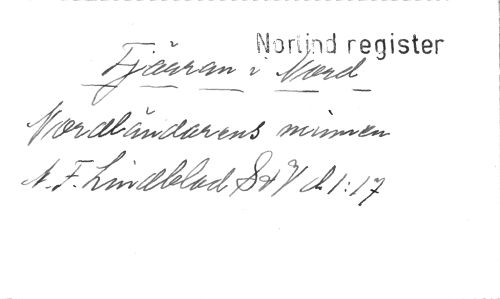 Norlind register
Fjäran i Nord
Nordländarens minnen
N. F. Lindblad S d 1:17